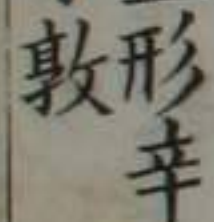 形辛
敦